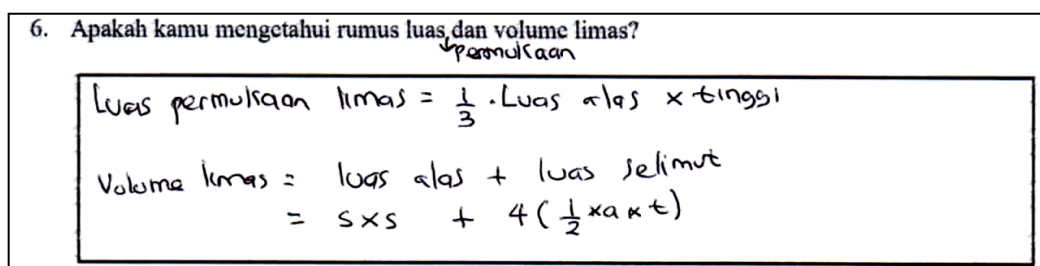 6. Apakah kamu mengetahui rumus luas dan volume limas?
permukaan
Luas permukaan limas = 1/3 . Luas alas x tinggi
Volume limas = luas alas + luas selimut
= s x s + 4 ( 1/2 x a x t )